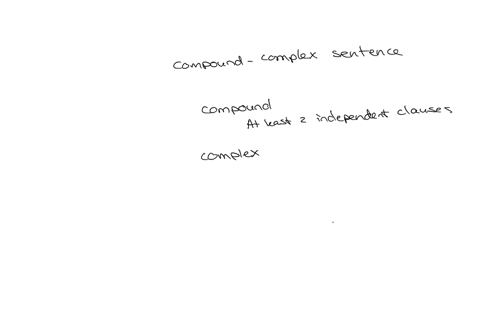 compound - complex sentence
compound
At least 2 independent clauses
complex